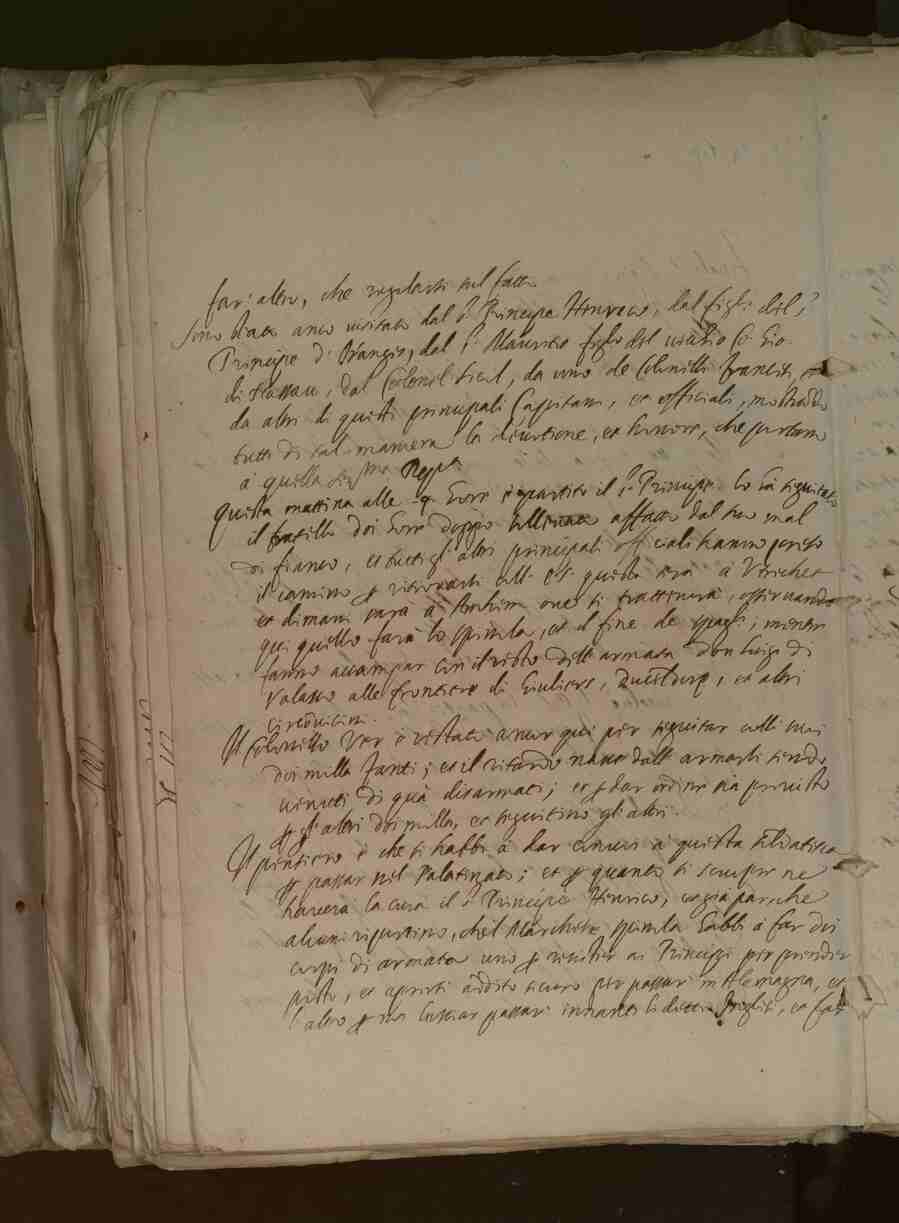 far altro, che regolarsi sul fatto.
Sono stato anco visitato dal s.r Principe Henrico, dal figli del s.r
Principe d'Oranges, dal s.r Mauritio figlio del vecchio Co: Gio.
di Nassau, dal Colonel Sicil, da uno de Colonelli francesi, et
da altri di questi principali Capitani, et officiali, mostrando
tutti di tal maniera la divotione, et honore, che portano
à quella Ser.ma Rep.ca
Questa mattina alle 9 hore è partito il s.r Principe. Lo hà seguitato
il fratello doi hore doppo sollevato affatto dal suo mal
di fianco, et tutti gl'altri principali officiali hanno preso
il camino p ritrovarsi con S.E. questa sera à
et dimani sarà à ove si trattenirà, osservando
qui quello farà lo Spinola, et il fine de spagli; mentre
fanno accampar con il resto dell'armata Don Luigi di
Valasco alle frontiere di Giuliers, et altri
circonvicini.
Il Colonello Ver è restato ancor qui per seguitar colli suoi
doi milla fanti; et il ritardo nasce dall'armarli sendo
venuti di quà disarmati; et p dar ordine sia provisto
p gl'altri doi milla, et seguitino gl'altri.
Il pensiero è che si habbi à dar à questa soldatesca
p passar nel Palatinato; et p quanto si scuopre ne
haverà la cura il s.r Principe Henrico, et già par che
alcuni reputino, che'l Marchese Spinola habbi à far doi
corpi di armata uno p resister ai Principi per prender
posto, et aprirsi adito sicuro per passar in Alemagna, et
l'altro p non lasciar passar innanti li detti Inglesi, et far